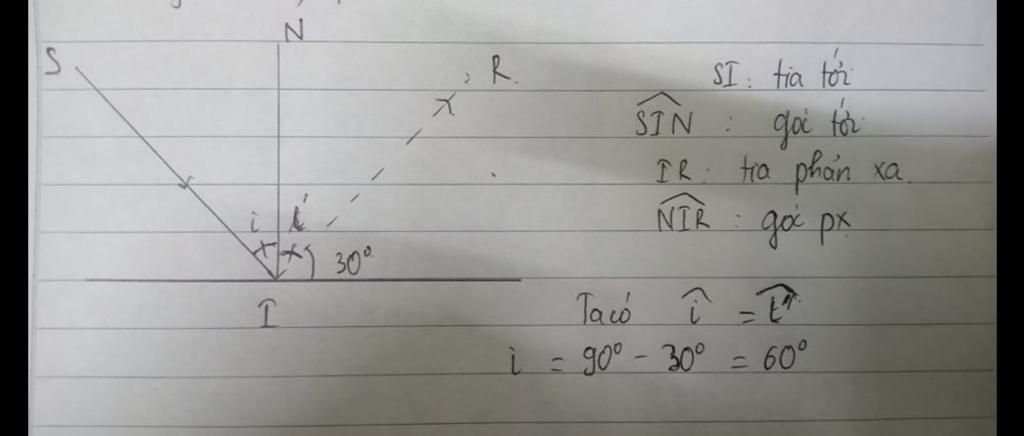 N
S
R.
SI: tia tới
SIN : góc tới
IR: tia phản xạ.
NIR : góc px
i i'
30°
I
Ta có i = i'
i = 90° - 30° = 60°